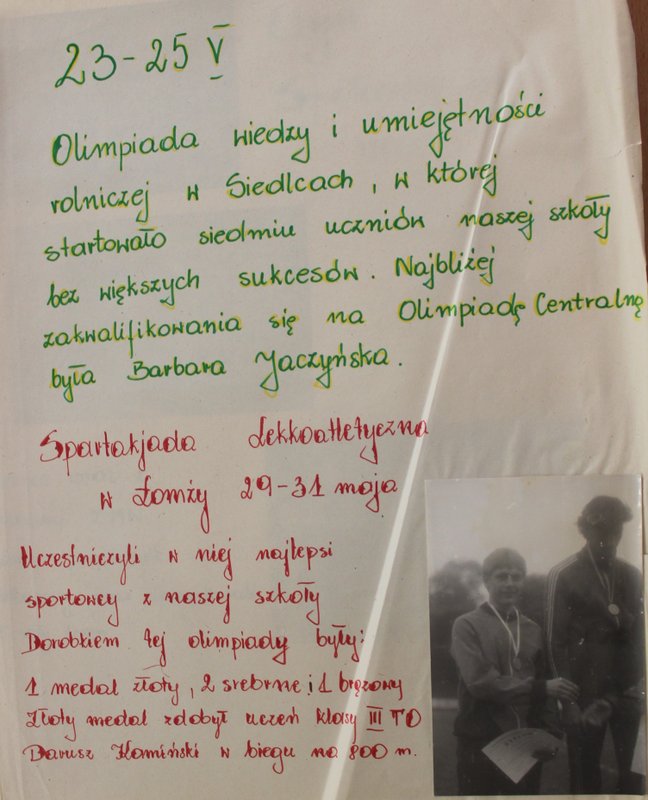 23-25 V
Olimpiada wiedzy i umiejętności
rolniczej w Siedlcach, w której
startowało siedmiu uczniów naszej szkoły
bez większych sukcesów. Najbliżej
zakwalifikowania się na Olimpiadę Centralną
była Barbara Jaczyńska.
Spartakjada Lekkoatletyczna
w Łomży 29-31 maja
Uczestniczyli w niej najlepsi
sportowcy z naszej szkoły
Dorobkiem tej olimpiady były:
1 medal złoty, 2 srebrne i 1 brązowy
Złoty medal zdobył uczeń klasy III TO
Dariusz Kamiński w biegu na 800 m.